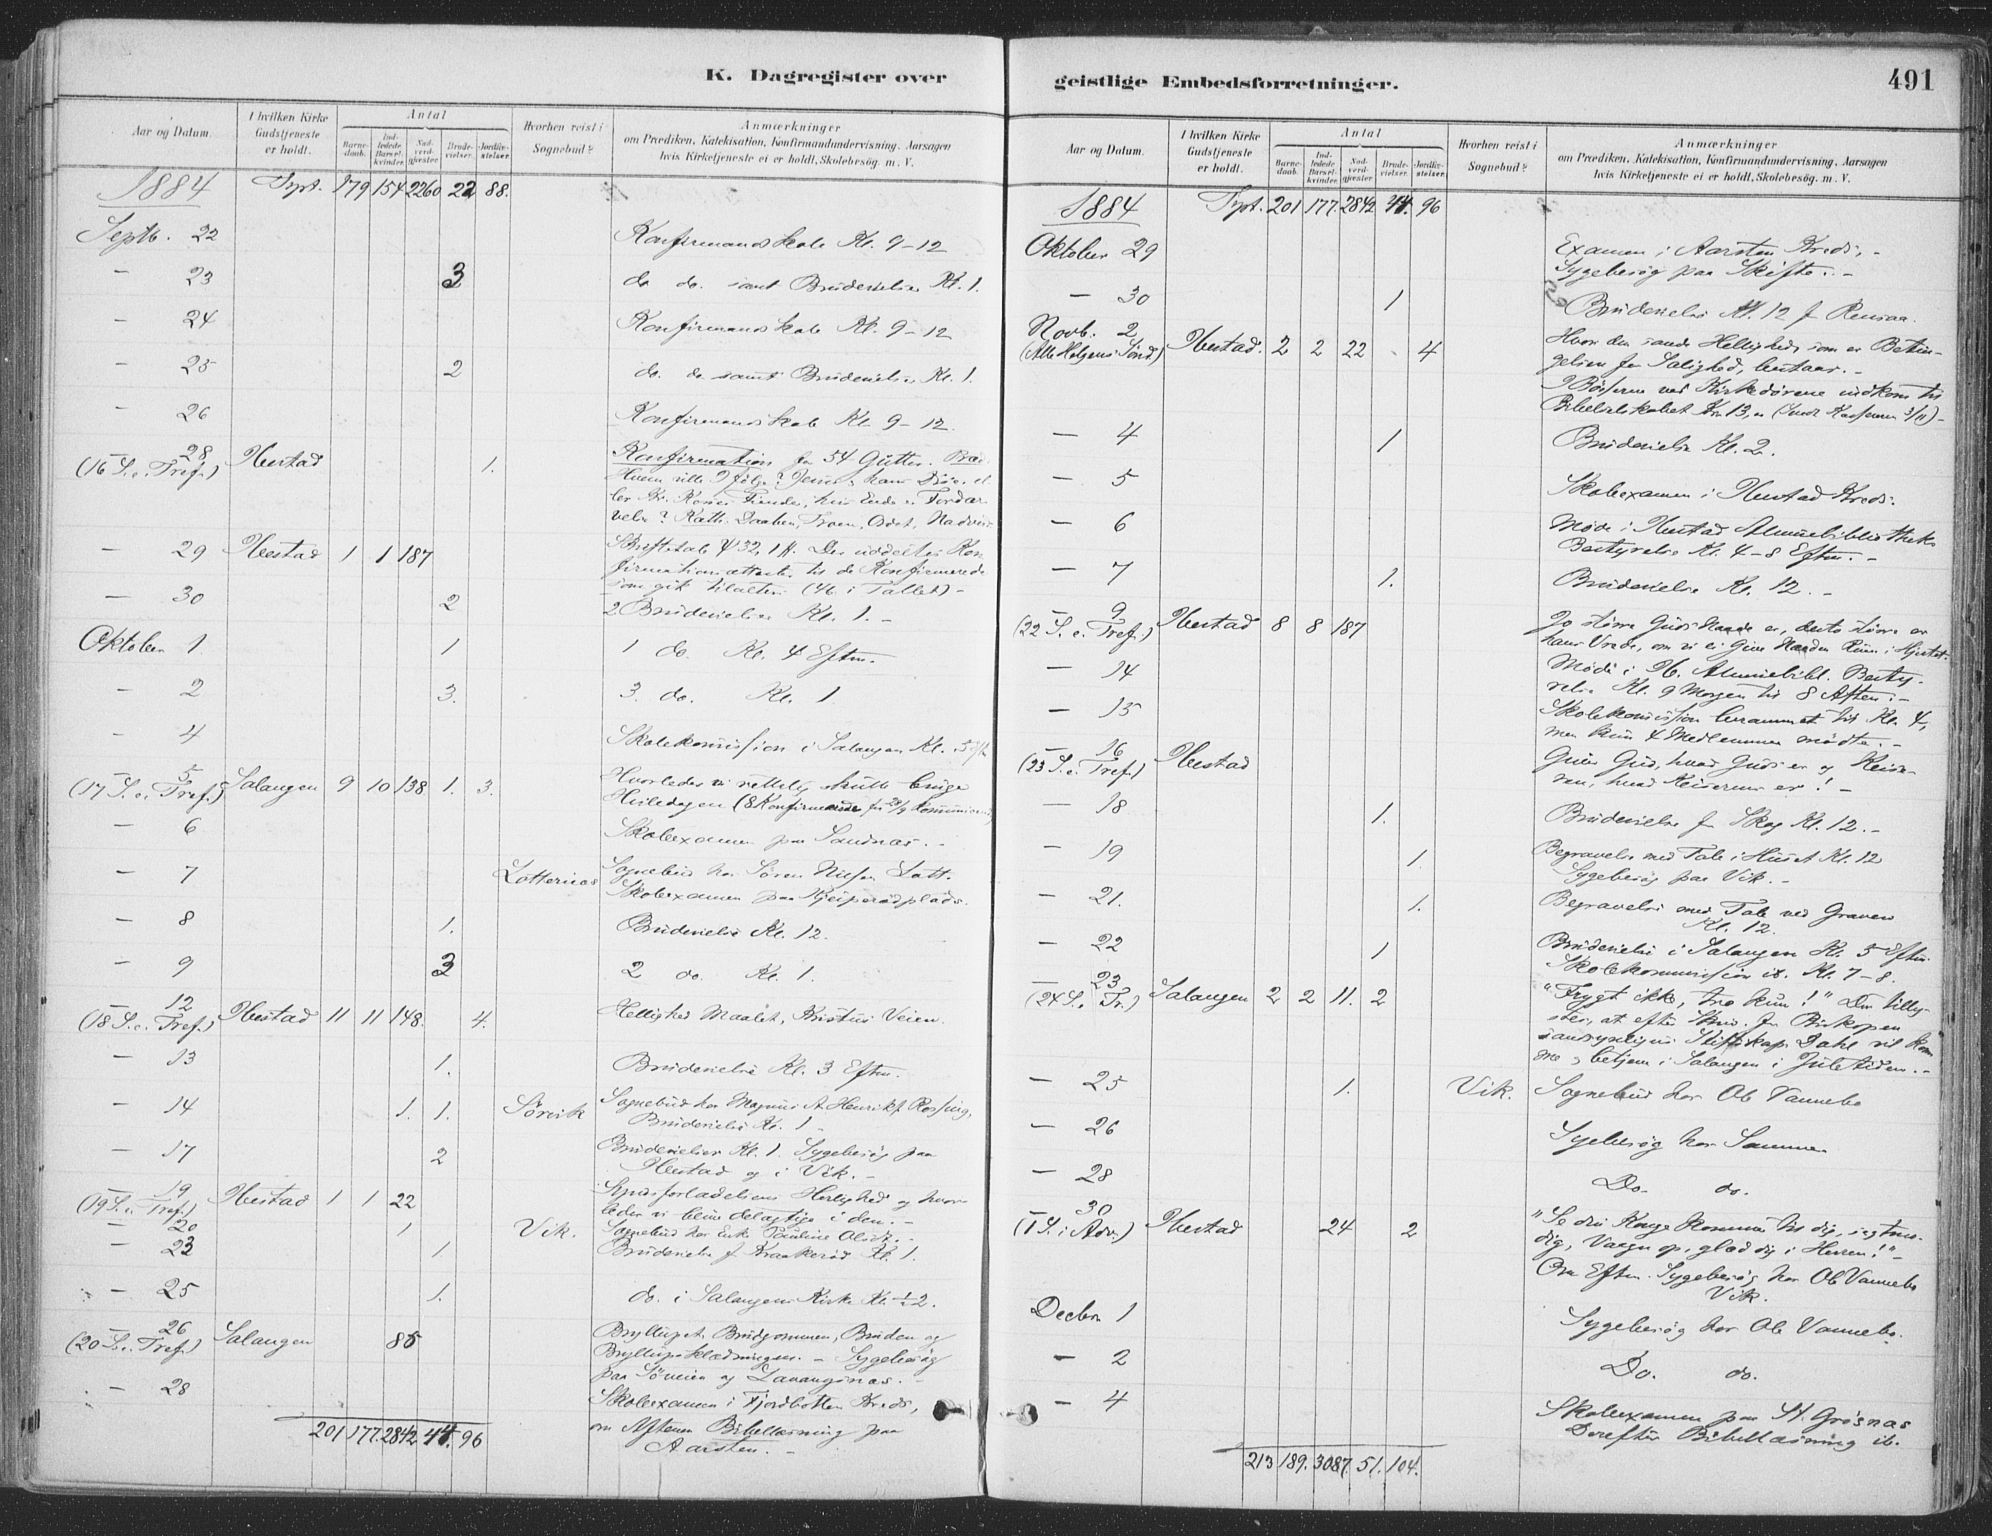 K. Dagregister over
Aar og Datum.
I hvilken Kirke Gudstjeneste er holdt.
Antal
Barnedaab.
Indledede Barselkvinder.
Nadverdgjester
Brudevielser.
Jordfæstelser.
Hvorhen reist i Sognebud?
Anmærkninger
om Prædiken, Katekisation, Konfirmandundervisning, Aarsagen
hvis Kirketjeneste ei er holdt, Skolebesøg. m. V.
1884 Trpt. 179 154 2260 22 88.
Septb. 22 Konfirmandskole Kl. 9-12
— 23 3 do do. samt Brudevielse Kl. 1.
— 24 Konfirmandskole Kl. 9-12
— 25 2 do. do samt Brudevielse Kl. 1.
— 26 Konfirmandskole Kl. 9-12.
— 28
(16 S. e. Tref.) Ibestad 1. Konfirmation for 54 Gutter.
— 29 Ibestad 1 1 187 Skriftetale Ψ 32, 1 ff. Der uddeltes Kon-
firmationsattester til de Konfirmerede
som gik tilalters (46 i Tallet) -
— 30 2 2 Brudevielser Kl. 1. -
Oktober 1 1 1 do. Kl. 4 Eftm.
— 2 3. 3. do. Kl. 1
— 4 Skolekommission i Salangen Kl. 5
— 5
(17 S. e. Tref.) Salangen 9 10 138 1. 3. Hvorledes vi rettelig skulle bruge
Hviledagen (8 Konfirmerede fra 28/9
— 6 Skoleexamen paa Sandnæs. -
— 7 Sognebud hos Søren Nilsen
Skoleexamen paa
— 8 1. Brudevielse Kl. 12.
— 9 3 2 do. Kl. 1.
— 12
(18 S. e. Tref.) Ibestad 11 11 148. 4. Hellighed Maalet, Kristus Veien.
— 13 1. Brudevielse Kl. 3 Eftm.
— 14 1. 1. Sørvik Sognebud hos Magnus A. Henrikst.
Brudevielse Kl. 1 -
— 17 2 Brudevielser Kl. 1. Sygebesøg paa
Ibestad og i Vik. -
— 19
(19 S. e. Tref.) Ibestad 1 1 22 Syndsforladelsens Herlighed og hvor-
ledes vi blive delagtige i den. -
— 20 1 Vik. Sognebud hos Enke Pauline
— 23 1 Brudevielse f. Kraakerød Kl. 1.
— 25 1. do. i Salangens Kirke Kl. ½2.
— 26
(20 S. e. Tref.) Salangen 85 Brylluppet, Brudgommen, Bruden og
Bryllupsklædningen. - Sygebesøg
paa Søveien og Lavangsnæs. -
— 28 Skoleexamen i Fjordbotten Kreds,
om Aftenen Bibellæsning paa
Aarsten. -
201 177. 2842 44. 96

geistlige Embedsforretninger. 491
Aar og Datum.
I hvilken Kirke Gudstjeneste er holdt.
Antal
Barnedaab.
Indledede Barselkvinder.
Nadverdgjester
Brudevielser.
Jordfæstelser.
Hvorhen reist i Sognebud?
Anmærkninger
om Prædiken, Katekisation, Konfirmandundervisning, Aarsagen
hvis Kirketjeneste ei er holdt, Skolebesøg. m. V.
1884 Trpt. 201 177. 2842 44. 96
Oktober 29 Examen i Aarsten Kreds, -
Sygebesøg paa Skifte. -
— 30 1 Brudevielse Kl. 12 f. Rensaa.
Novb. 2
(Alle Helgens Sønd.) Ibestad. 2 2 22 - 4 Hvori den sande Hellighed, som er Betin-
gelsen for Salighed, bestaar. -
I Bøsserne ved Kirkedørene indkom til
Bibelselskabet Kr 13,
— 4 1 Brudevielse Kl. 2.
— 5 Skoleexamen i Ibestad Kreds.
— 6 Møde i Ibestad Almuebibliotheks
Bestyrelse Kl. 4-8 Eftm. -
— 7 1. Brudevielse Kl. 12. -
— 9
(22 S. e. Tref.) Ibestad 8 8 187 Jo større Guds Naade er, desto større er
hans Vrede, om vi ei give Naaden Rum i Hjertet.
— 14 Møde i Ib. Almuebibl. Besty-
relse Kl. 9 Morgen til 8 Aften. -
— 15 Skolekommission berammet til Kl. 4,
men kun 4 Medlemmer mødte. -
— 16
(23 S. e. Tref.) Ibestad Giver Gud, hvad Guds er og Keise-
ren, hvad Keiserens er! -
— 18 1. Brudevielse f. Skog Kl. 12. -
— 19 1. Begravelse med Tale i Huset Kl. 12
Sygebesøg paa Vik. -
— 21. 1. Begravelse med Tale ved Graven
Kl. 12.
— 22 1 Brudevielse i Salangen Kl. 5 Eftm.
Skolekommission ib. Kl. 7-8.
— 23
(24 S. e. Tr.) Salangen 2 2 11. 2 "Frygt ikke, tro kun!" Der tilly-
stes, at efter Skriv. fra Biskopen
sandsynligvis Stiftskap. Dahl vil kom-
me og betjene i Salangen i Juletiden. -
— 25 1. Vik. Sognebud hos Ole Vannebo
— 26 Sygebesøg hos Samme
— 28 Do. do.
— 30
(1 S. i Adv.) Ibestad 24 2 "Se din Konge kommer til dig, sagtmo-
dig, Vaagn op, glæd dig i Herren!" -
Om Eftm. Sygebesøg hos Ole Vannebo
Vik.
Decbr 1 Sygebesøg hos Ole Vannebo.
— 2 Do. do.
— 4 Skoleexamen paa St. Grøsnæs
Derefter Bibellæsning ib.
213 189. 3087. 51. 104.